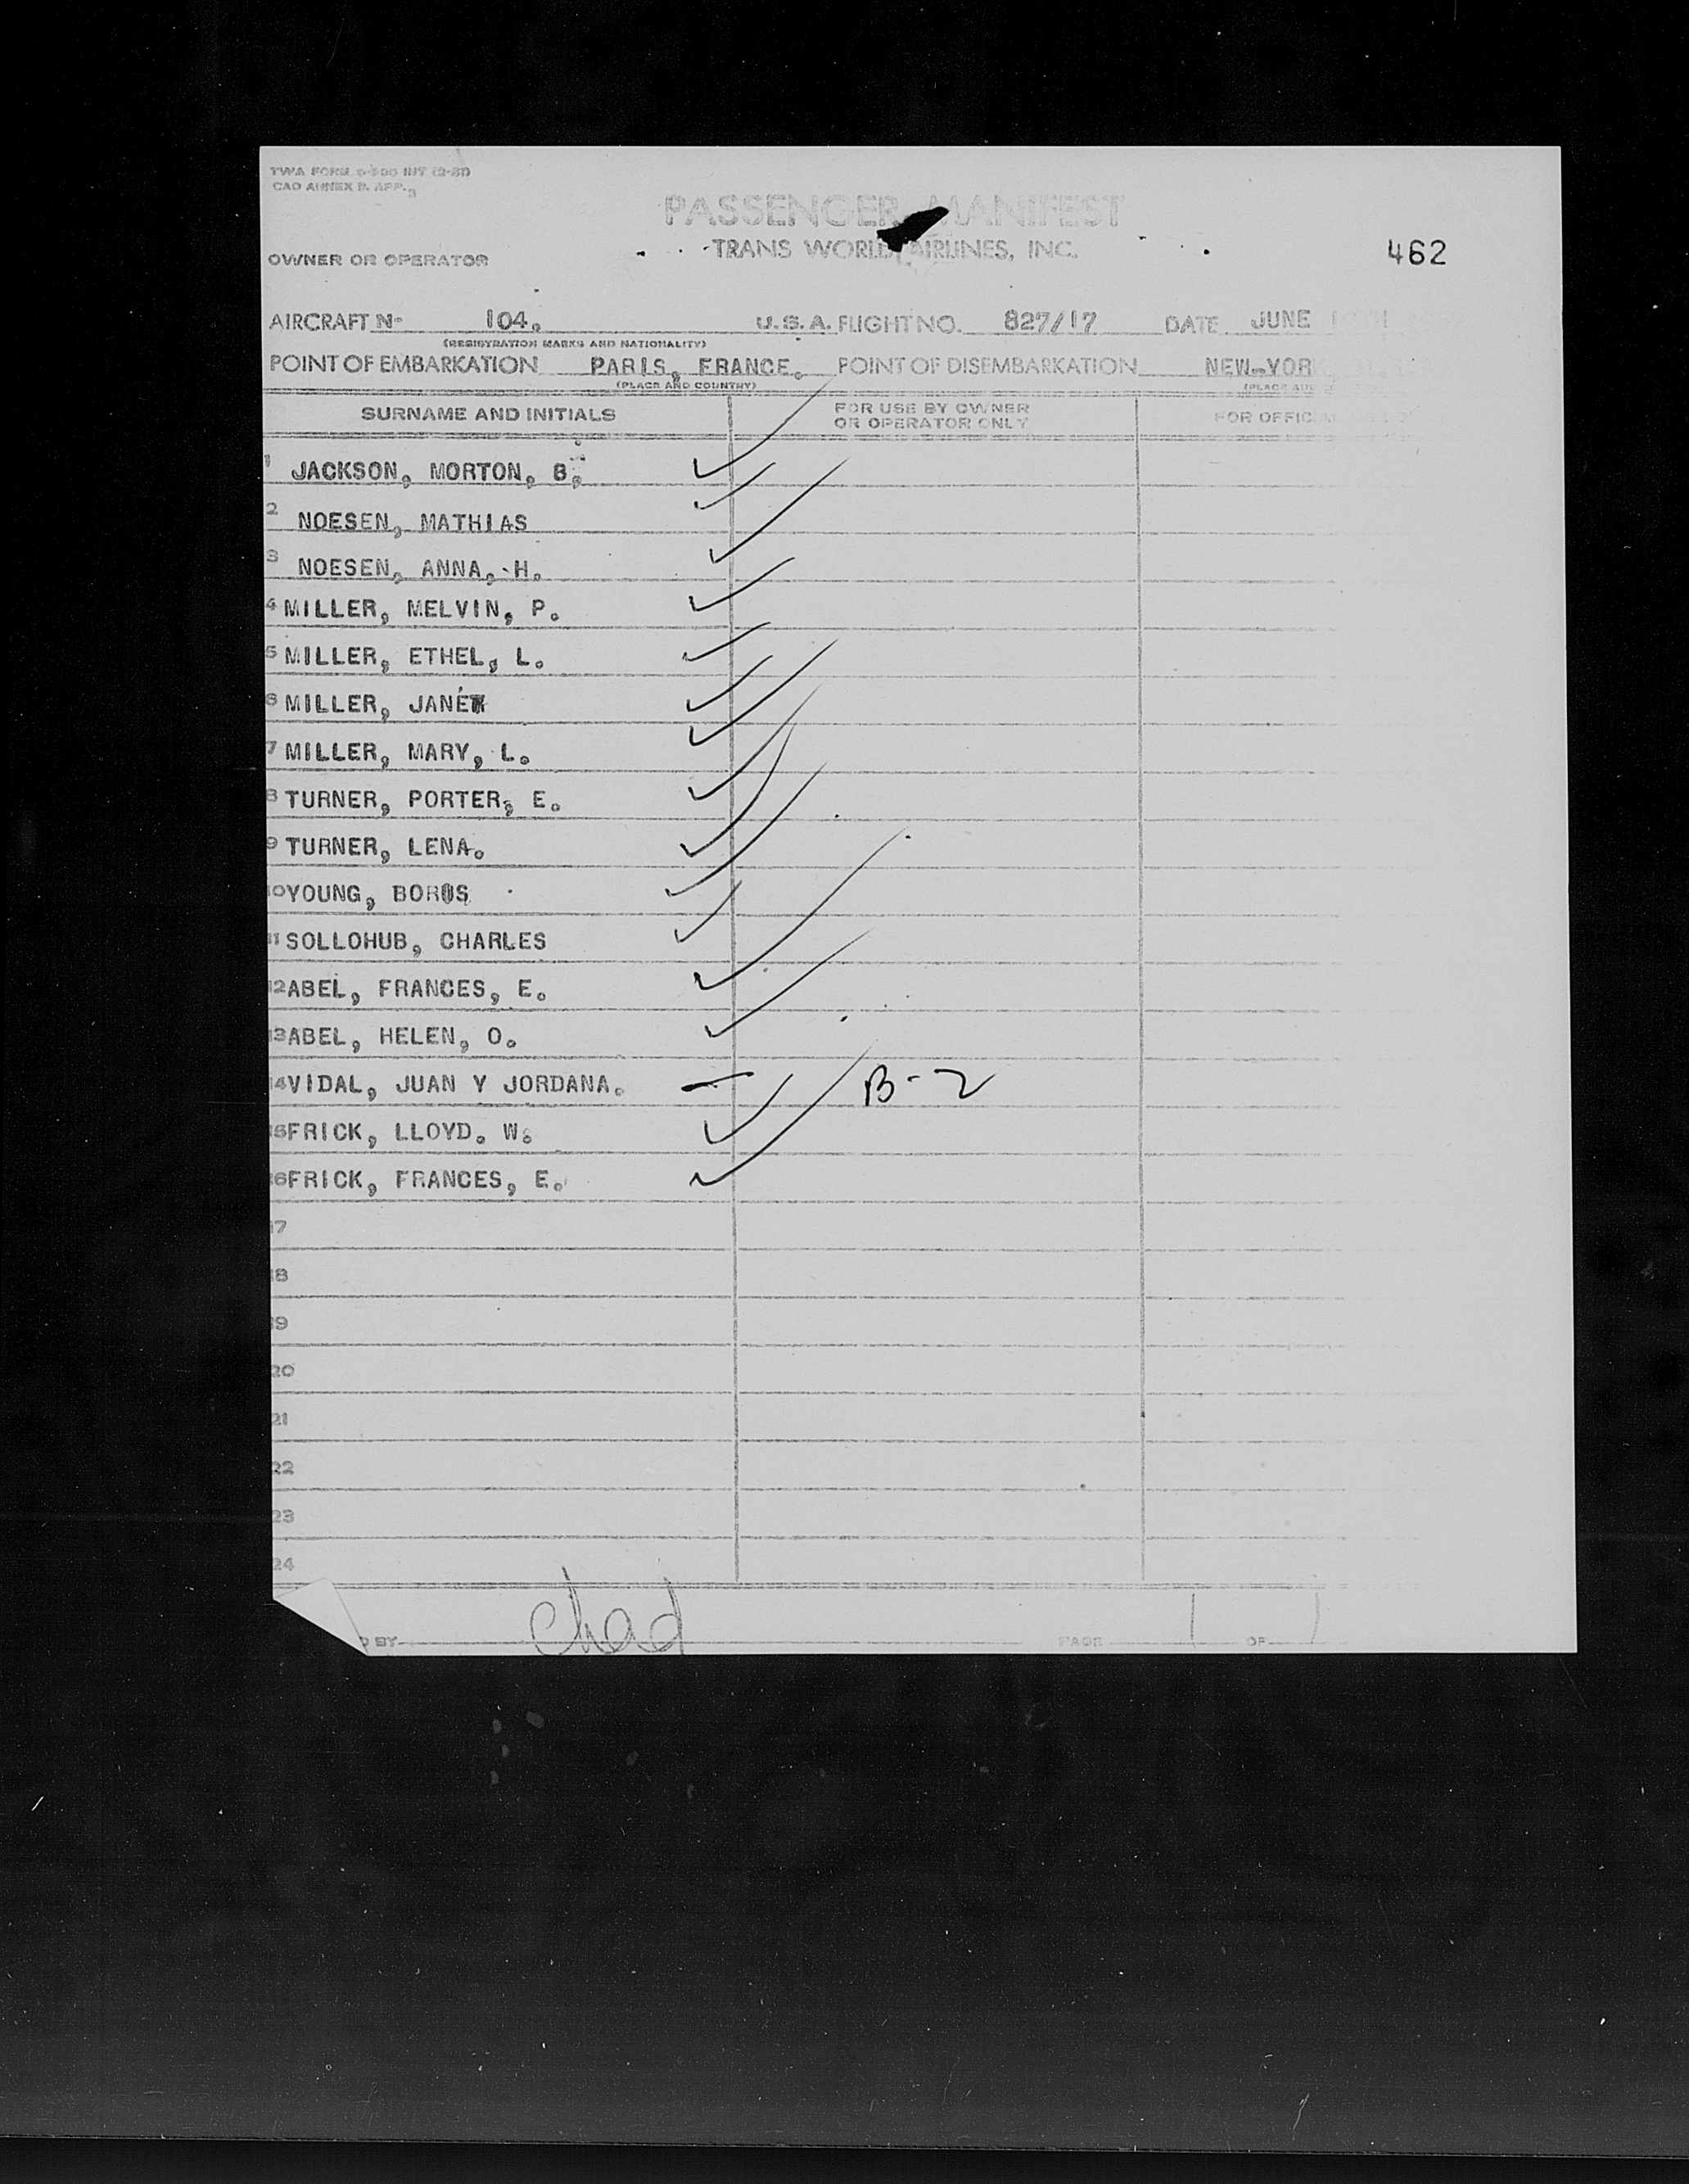 TWA FORM
CAO ANNEX 9. APP. 3
PASSENGER MANIFEST
OWNER OR OPERATOR TRANS WORLD AIRLINES, INC. 462
AIRCRAFT Nº 104. U.S.A. FLIGHT NO. 827/17 DATE JUNE
(REGISTRATION MARKS AND NATIONALITY)
POINT OF EMBARKATION PARIS, FRANCE. POINT OF DISEMBARKATION NEW-YOR
(PLACE AND COUNTRY) (PLACE
SURNAME AND INITIALS FOR USE BY OWNER OR OPERATOR ONLY FOR OFFIC
1 JACKSON, MORTON, B.
2 NOESEN, MATHIAS
3 NOESEN, ANNA, H.
4 MILLER, MELVIN, P.
5 MILLER, ETHEL, L.
6 MILLER, JANET
7 MILLER, MARY, L.
8 TURNER, PORTER, E.
9 TURNER, LENA.
10 YOUNG, BORIS
11 SOLLOHUB, CHARLES
12 ABEL, FRANCES, E.
13 ABEL, HELEN, O.
14 VIDAL, JUAN Y JORDANA. B-2
15 FRICK, LLOYD. W.
16 FRICK, FRANCES, E.
17
18
19
20
21
22
23
24
D BY chad PAGE 1 OF 1